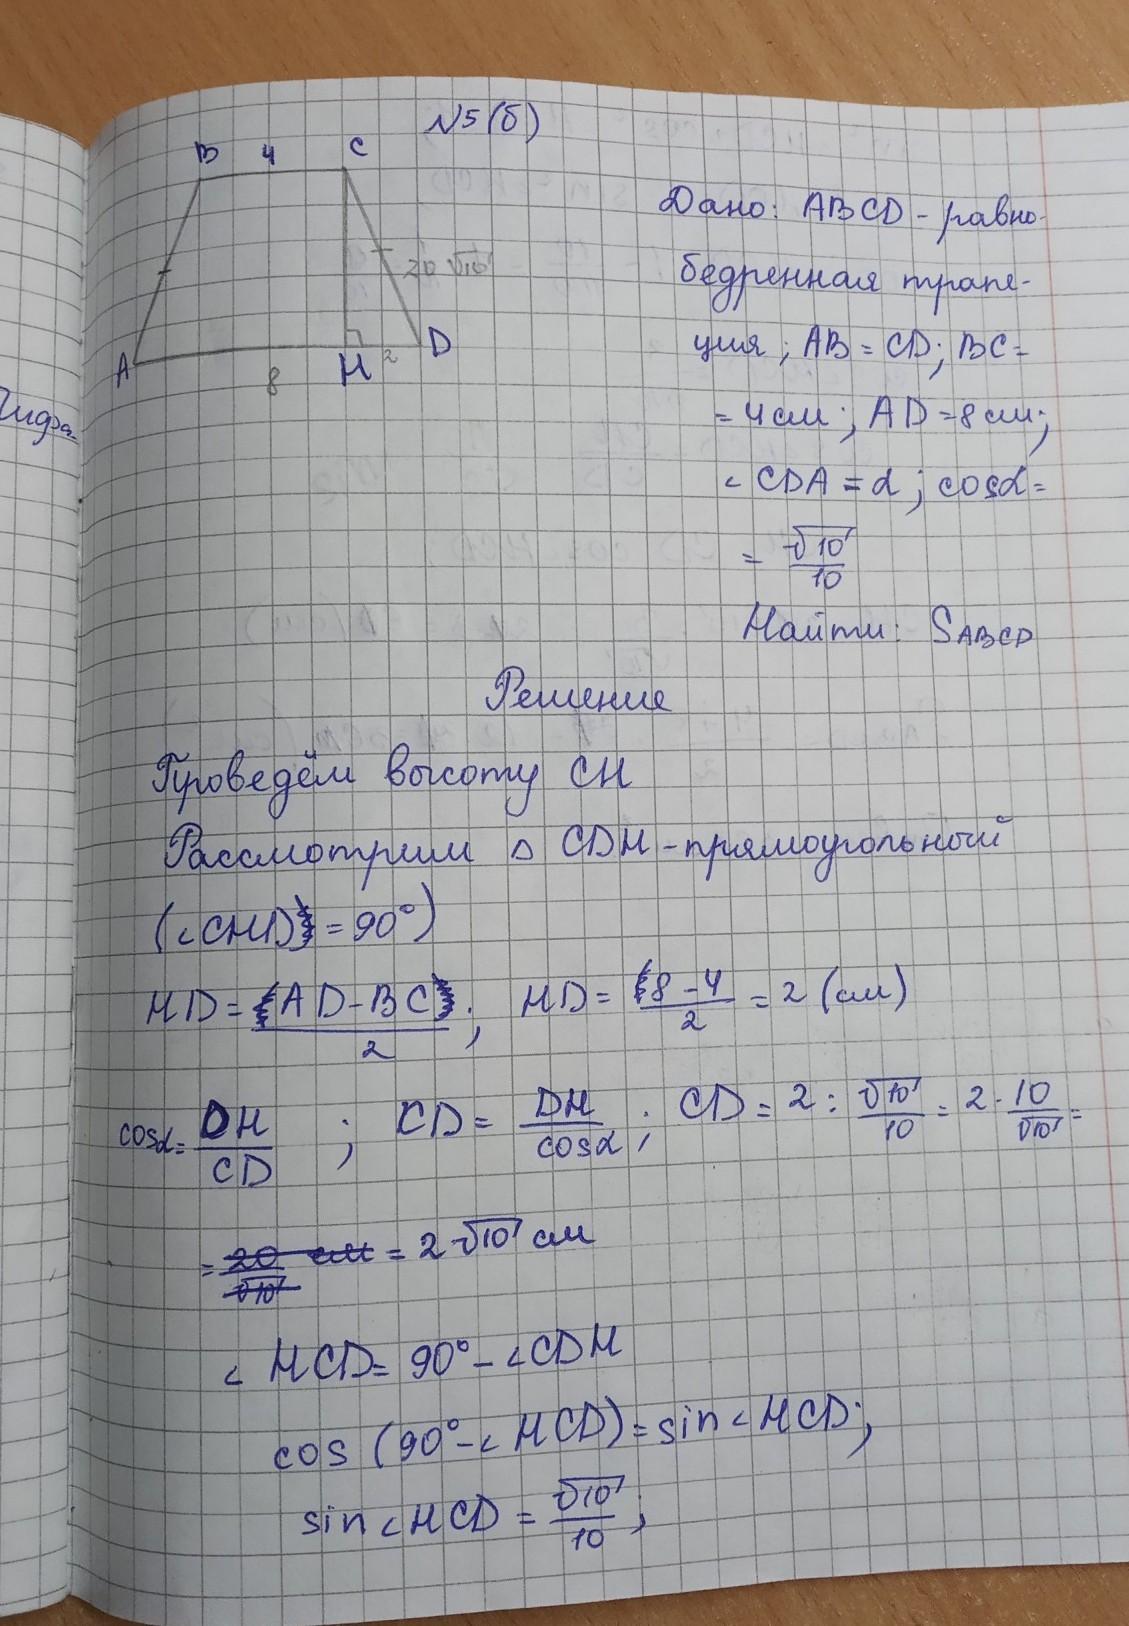 N5(б)
B 4 C
20 √10
A H 2 D
8
Дано: ABCD - равно-
бедренная трапе-
ция; AB = CD; BC =
= 4 см; AD = 8 см;
∠ CDA = α; cosα =
= √10/10
Найти: SABCD
Решение
Проведём высоту CH
Рассмотрим △ CDH - прямоугольный
(∠CHD = 90°)
HD = (AD - BC)/2; HD = (8 - 4)/2 = 2 (см)
cosα = DH/CD; CD = DH/cosα; CD = 2 : √10/10 = 2 · 10/√10 =
= 20/√10 см = 2√10 см
∠ HCD = 90° - ∠CDH
cos (90° - ∠ HCD) = sin ∠ HCD;
sin ∠ HCD = √10/10;